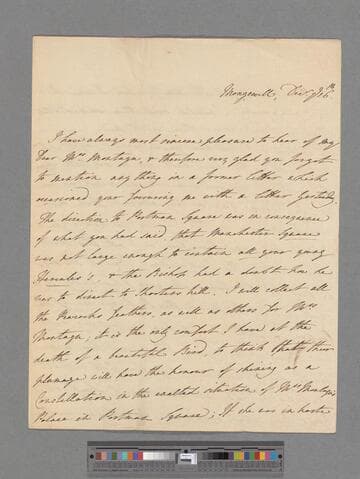 Mongewell, Decr 16th
I have always most sincere pleasure to hear of my
Dear Mrs Montagu, & therefore very glad you forgot
to mention any thing in a former letter which
occasioned your favouring me with a letter yesterday.
The direction to Portman Square was in consequence
of what you had said that Manchester Square
was not large enough to contain all your young
Hercules's, & the Bishop had a doubt how he
was to direct to Shooters hill. I will collect all
the Peacocks feathers, as well as others for Mrs
Montagu, it is the only comfort I have at the
death of a beautiful Bird, to think that their
plumage will have the honour of shining as a
Constellation in the exalted situation of Mrs Montagu's
Palace in Portman Square; If she was in haste